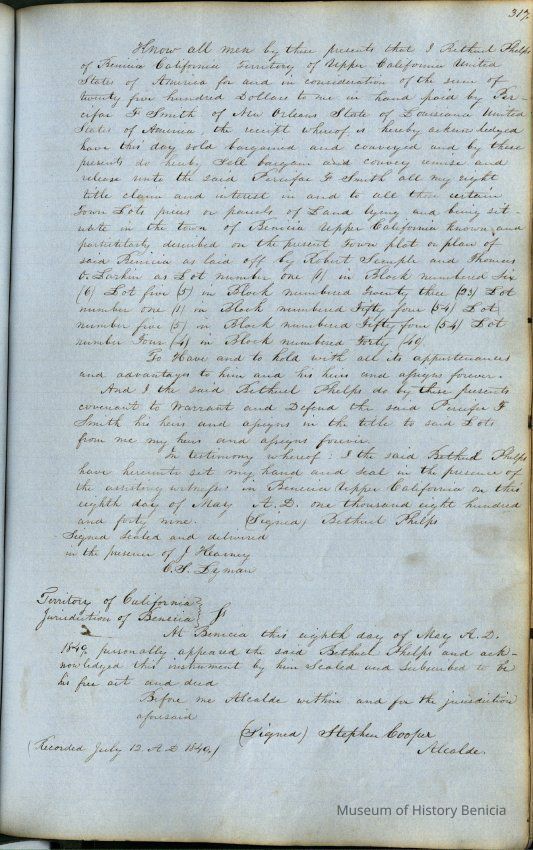 317.
Know all men by these presents that I Bethuel Phelps
of Benicia California Territory of Upper California United
States of America for and in consideration of the sum of
twenty five hundred Dollars to me in hand paid by Per-
cifar F Smith of New Orleans State of Louisiana United
States of America, the receipt whereof is hereby acknowledged
have this day sold bargained and conveyed and by these
presents do hereby Sell bargain and convey remise and
release unto the said Percifar F Smith all my right
title claim and interest in and to all those certain
Town Lots pieces or parcels of Land lying and being sit
uate in the town of Benicia Upper California known and
particularly described on the present Town plot or plan of
said Benicia as laid off by Robert Semple and Thomas
O. Larkin as Lot number one (1) in Block numbered Six
(6) Lot five (5) in Block numbered Twenty three (23) Lot
number one (1) in Block numbered Fifty four (54) Lot
number five (5) in Block numbered Fifty four (54) Lot
number Four (4) in Block numbered Forty (40)
To Have and to hold with all its appurtenances
and advantages to him and his heirs and assigns forever.
And I the said Bethuel Phelps do by these presents
covenant to Warrant and Defend the said Percifer F
Smith his heirs and assigns in the title to said Lots
from me my heirs and assigns forever.
In testimony whereof I the said Bethuel Phelps
have hereunto set my hand and seal in the presence of
the assisting witnesses in Benicia Upper California on this
eighth day of May A.D. one thousand eight hundred
and forty nine. (Signed) Bethuel Phelps
Signed Sealed and delivered
in the presence of J Kearney
C. S. Lyman
Territory of California
Jurisdiction of Benicia
At Benicia this eighth day of May A.D.
1849 personally appeared the said Bethuel Phelps and ack-
nowledged this instrument by him Sealed and subscribed to be
his free act and deed
Before me Alcalde within and for the jurisdiction
aforesaid
(Signed) Stephen Cooper
Alcalde
(Recorded July 12 A D 1849)
Museum of History Benicia